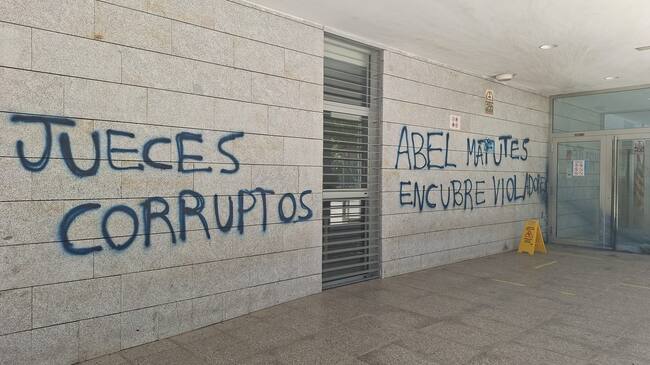 JUECES
CORRUPTOS
ABEL MATUTES
ENCUBRE VIOLADORES